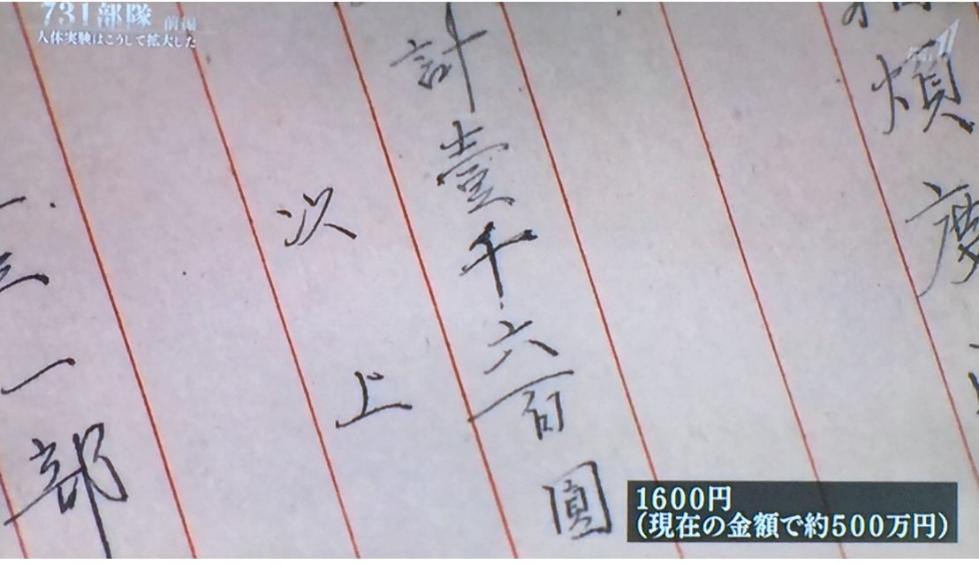 731部隊 前編
人体実験はこうして拡大した
煩度
計壹千六百圓
以上
三一部
1600円
(現在の金額で約500万円)